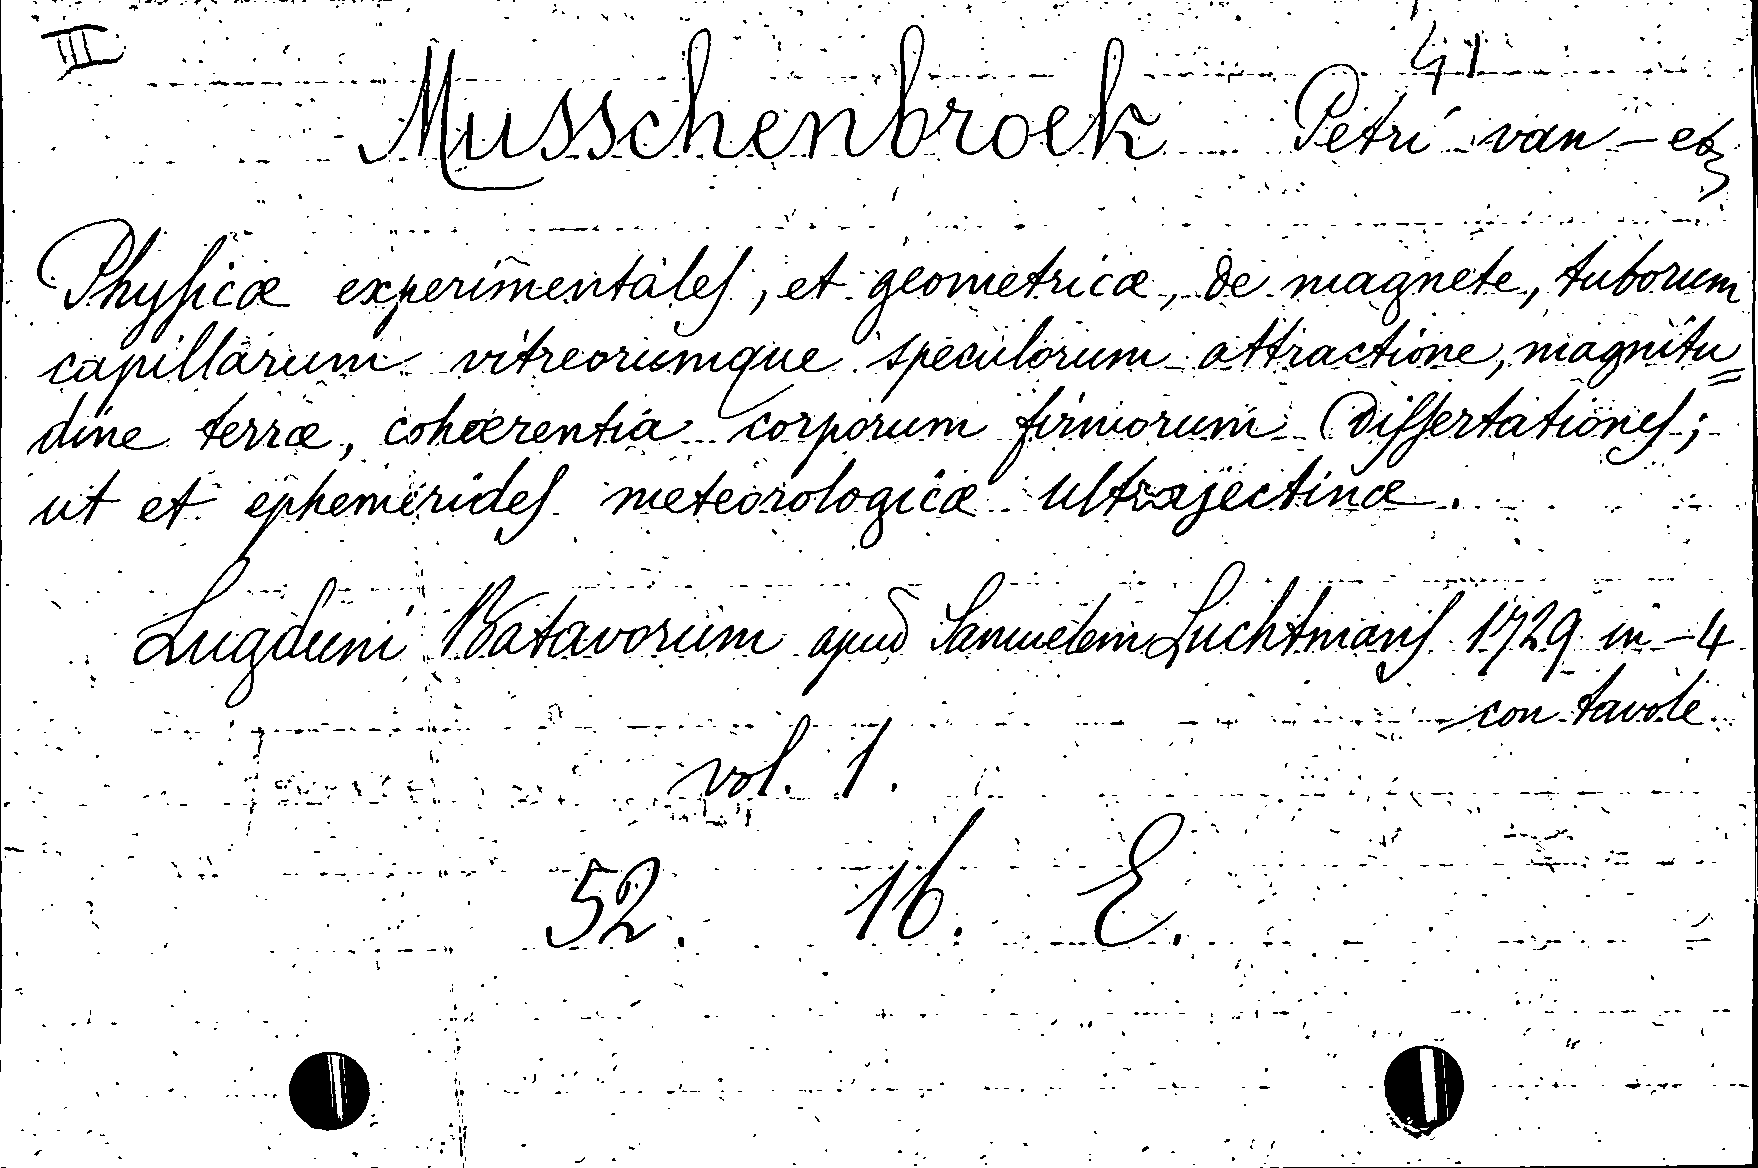 III
41
Musschenbroek Petri van – etz
Physicæ experimentales, et geometricæ, de magnete, tuborum
capillarum vitreorumque speculorum attractione, magnitu=
dine terræ, cohærentia corporum firmorum Dissertationes;
ut et ephemerides meteorologicæ ultrajectinæ.
Lugduni Batavorum apud Samuelem Luchtmans 1729 in-4
con tavole.
vol. 1.
52. 16. E.